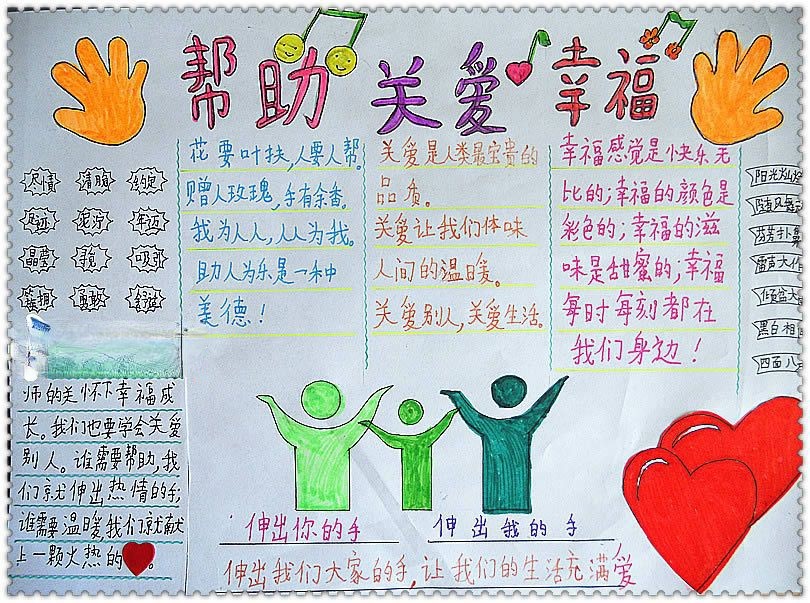 帮助 关爱 幸福
尽责 清脆 约定
足迹 泥泞 年迈
晶莹 寻觅 吸引
簇拥 勇敢
花要叶扶,人要人帮。
赠人玫瑰,手有余香。
我为人人,人人为我。
助人为乐是一种
美德!
关爱是人类最宝贵的
品质。
关爱让我们体味
人间的温暖。
关爱别人,关爱生活。
幸福感觉是快乐无
比的;幸福的颜色是
彩色的;幸福的滋
味是甜蜜的;幸福
每时每刻都在
我们身边!
阳光灿烂
随风舞动
雷声大作
倾盆大
黑白相间
四面八
师的关怀下幸福成
长。我们也要学会关爱
别人。谁需要帮助,我
们就伸出热情的手;
谁需要温暖,我们就献
上一颗火热的 。
伸出你的手 伸出我的手
伸出我们大家的手,让我们的生活充满爱